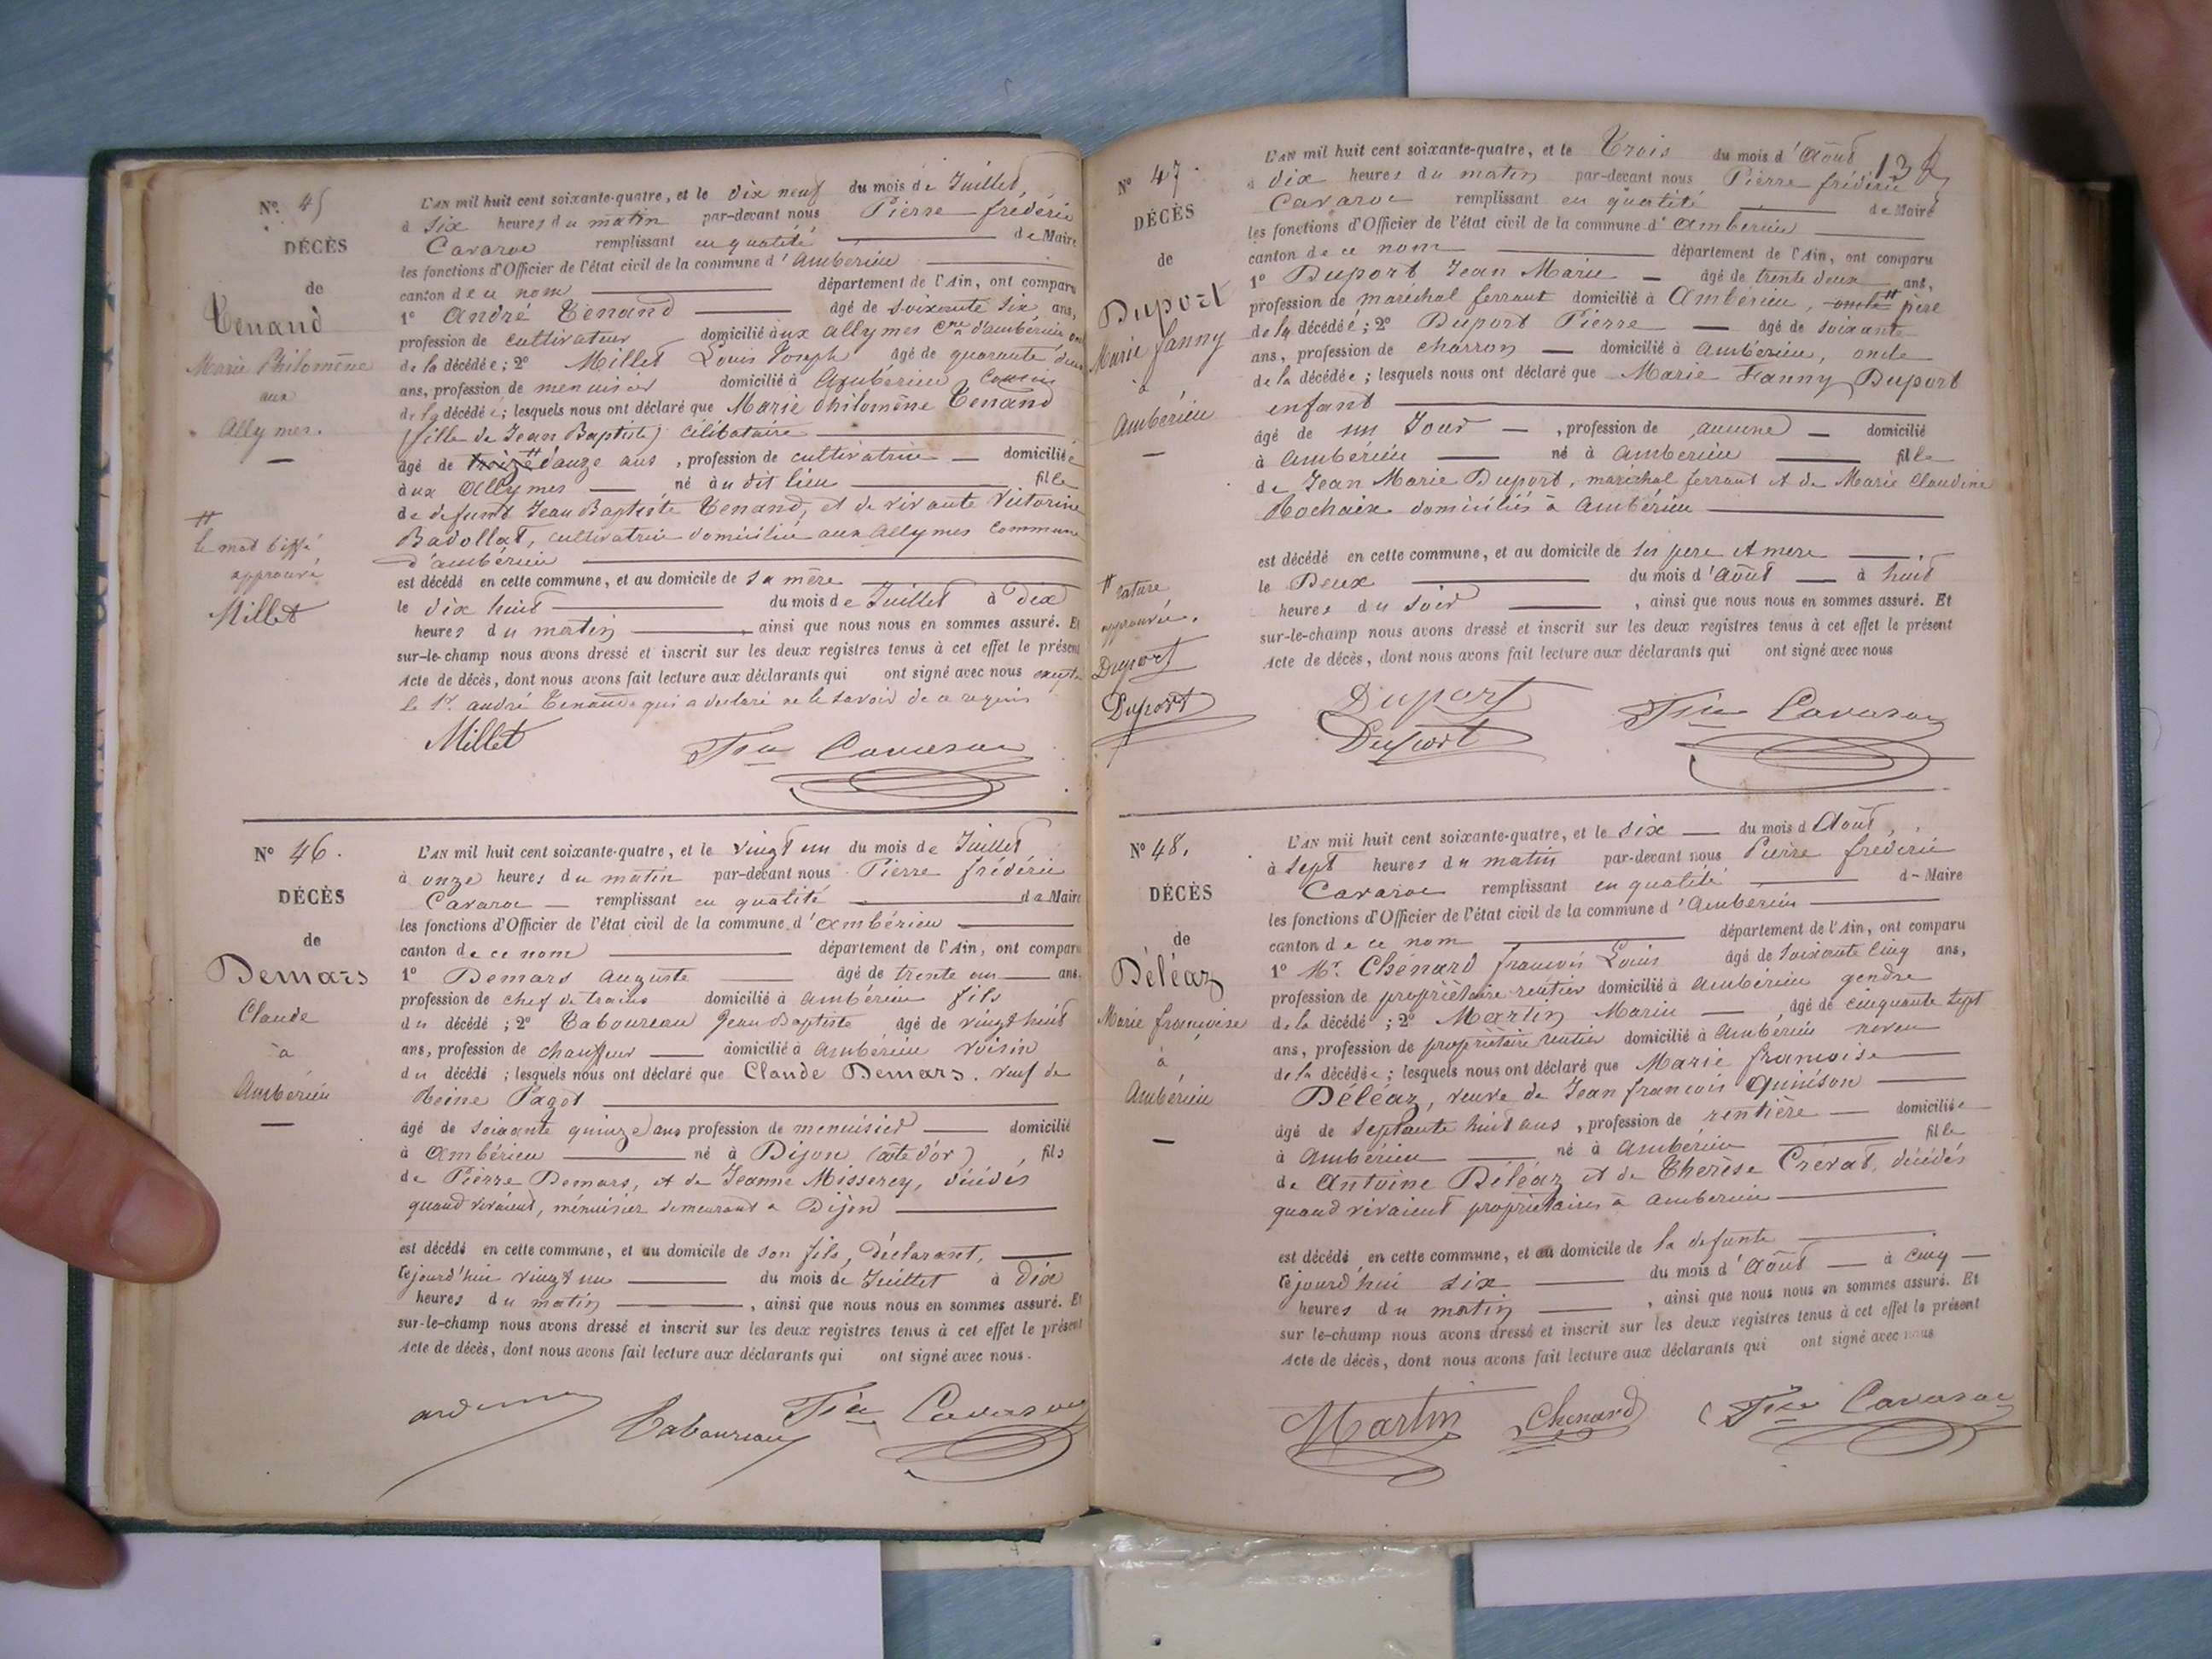 N° 45
DÉCÈS
de
Tenand
Marie Philomène
aux
Allymes.
#
le mot biffé
approuvé
Millet
L'AN mil huit cent soixante-quatre, et le dix neuf du mois de Juillet,
à six heures du matin par-devant nous Pierre frédéric
Cavaroc remplissant en qualité de Maire
les fonctions d'Officier de l'état civil de la commune d'Ambérieu
canton de ce nom département de l'Ain, ont comparu
1° André Tenand âgé de soixante six ans,
profession de cultivateur domicilié aux allymes Cne d'ambérieu,
de la décédée; 2° Millet Louis Joseph âgé de quarante deux
ans, profession de menuisier domicilié à Ambérieu cousin
de la décédée; lesquels nous ont déclaré que Marie philomène Tenand
(fille de Jean Baptiste) célibataire
âgé de treize # douze ans, profession de cultivatrice domiciliée
aux Allymes né au dit lieu fille
de defunt Jean Baptiste Tenand, et de vivante Victorine
Badollat, cultivatrice domiciliée aux Allymes commune
d'ambérieu
est décédé en cette commune, et au domicile de sa mère
le dix huit du mois de Juillet à dix
heures du matin, ainsi que nous nous en sommes assuré. Et
sur-le-champ nous avons dressé et inscrit sur les deux registres tenus à cet effet le présent
Acte de décès, dont nous avons fait lecture aux déclarants qui ont signé avec nous excepté
le Sr. andré Tenand qui a déclaré ne le savoir de ce requis
Millet Fic Cavaroc
N° 46.
DÉCÈS
de
Demars
Claude
à
Ambérieu
L'AN mil huit cent soixante-quatre, et le vingt un du mois de Juillet
à onze heures du matin par-devant nous Pierre frédéric
Cavaroc remplissant en qualité de Maire
les fonctions d'Officier de l'état civil de la commune d'ambérieu
canton de ce nom département de l'Ain, ont comparu
1° Demars Auguste âgé de trente un ans.
profession de chef de trains domicilié à ambérieu fils
du décédé; 2° Taboureau Jean Baptiste âgé de vingt huit
ans, profession de chauffeur domicilié à ambérieu voisin
du décédé; lesquels nous ont déclaré que Claude Demars. veuf de
Reine Pagot
âgé de soixante quinze ans profession de menuisier domicilié
à Ambérieu né à Dijon (côte d'or), fils
de Pierre Demars, et de Jeanne Misserey, décédés
quand vivaient, ménuisier demeurant à Dijon
est décédé en cette commune, et au domicile de son fils, déclarant,
cejourd'hui vingt un du mois de Juillet à dix
heures du matin, ainsi que nous nous en sommes assuré. Et
sur-le-champ nous avons dressé et inscrit sur les deux registres tenus à cet effet le présent
Acte de décès, dont nous avons fait lecture aux déclarants qui ont signé avec nous.
Taboureau Fic Cavaroc
N° 47.
DÉCÈS
de
Duport
Marie fanny
à
Ambérieu
# rature
approuvée.
Duport
Duport
L'AN mil huit cent soixante-quatre, et le Trois du mois d'Août
à dix heures du matin par-devant nous Pierre frédéric
Cavaroc remplissant en qualité de Maire
les fonctions d'Officier de l'état civil de la commune d'Ambérieu
canton de ce nom département de l'Ain, ont comparu
1° Duport Jean Marie âgé de trente deux ans,
profession de maréchal ferrant domicilié à Ambérieu, oncle # père
de la décédée; 2° Duport Pierre âgé de soixante
ans, profession de charron domicilié à Ambérieu, oncle
de la décédée; lesquels nous ont déclaré que Marie Fanny Duport
enfant
âgé de un Jour, profession de aucune domicilié
à Ambérieu né à Ambérieu fille
de Jean Marie Duport, maréchal ferrant et de Marie Claudine
Rochaix domiciliés à Ambérieu
est décédé en cette commune, et au domicile de ses pere et mere
le Deux du mois d'Août à huit
heures du soir, ainsi que nous nous en sommes assuré. Et
sur-le-champ nous avons dressé et inscrit sur les deux registres tenus à cet effet le présent
Acte de décès, dont nous avons fait lecture aux déclarants qui ont signé avec nous
Duport
Duport Fic Cavaroc
N° 48.
DÉCÈS
de
Déléaz
Marie françoise
à
Ambérieu
L'AN mil huit cent soixante-quatre, et le six du mois d'Août,
à sept heures du matin par-devant nous Pierre frédéric
Cavaroc remplissant en qualité de Maire
les fonctions d'Officier de l'état civil de la commune d'Ambérieu
canton de ce nom département de l'Ain, ont comparu
1° Mr. Chénard françois Louis âgé de soixante cinq ans,
profession de propriétaire rentier domicilié à ambérieu gendre
de la décédé; 2° Martin Marin, âgé de cinquante sept
ans, profession de propriétaire rentier domicilié à Ambérieu neveu
de la décédée; lesquels nous ont déclaré que Marie françoise
Déléaz, veuve de Jean françois Quinson
âgé de Septante huit ans, profession de rentière domiciliée
à Ambérieu né à Ambérieu fille
de Antoine Déléaz et de Thérèse Crévat, décédés
quand vivaient propriétaires à Ambérieu
est décédé en cette commune, et au domicile de la defunte
cejourd'hui six du mois d'Août à cinq
heures du matin, ainsi que nous nous en sommes assuré. Et
sur le-champ nous avons dressé et inscrit sur les deux registres tenus à cet effet le présent
Acte de décès, dont nous avons fait lecture aux déclarants qui ont signé avec nous
Martin Chenard Fic Cavaroc